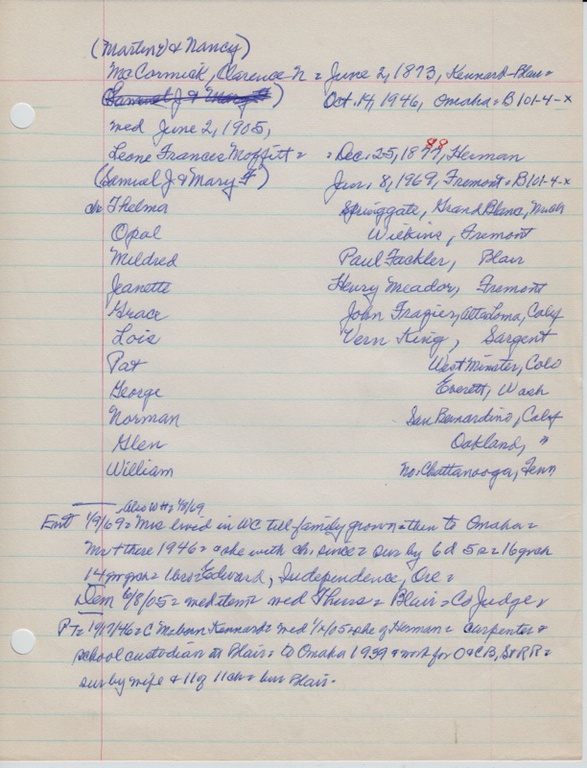 (Martin & Nancy)
McCormick, Clarence N = June 2, 1873, Kennard-Blair=
(Samuel J & Mary F) Oct. 14, 1946, Omaha = B 101-4-x
med June 2, 1905,
Leone Frances Moffitt = = Dec. 25, 1877, 88 Herman
(Samuel J & Mary F) Jan. 8, 1969, Fremont = B101-4-x
ch: Thelma Springgate, Grand Blanc, Mich
Opal Wilkins, Fremont
Mildred Paul Fackler, Blair
Jeanette Henry Meador, Fremont
Grace John Frazier, Alta Loma, Calif
Lois Vern King, Sargent
Pat West Minster, Colo
George Everett, Wash
Norman San Bernardino, Calif
Glen Oakland, "
William No. Chattanooga, Tenn
Also 1/9/69
Ent 1/9/69 = Mrs lived in WC till family grown = then to Omaha =
Mr + there 1946 = she with ch. since = sur by 6 d 5 s = 16 grch
14 gr grch = 1 bro = Edward, Independence, Ore =
Dem 6/8/05 = med item = med Thurs = Blair = Co Judge,
PT = 10/17/46 = C Mc born Kennard = med = she of Herman = carpenter =
school custodian at Blair = to Omaha 1939 = work for O & CB, St RR =
sur by wife & 11 of 11 ch = bur Blair.